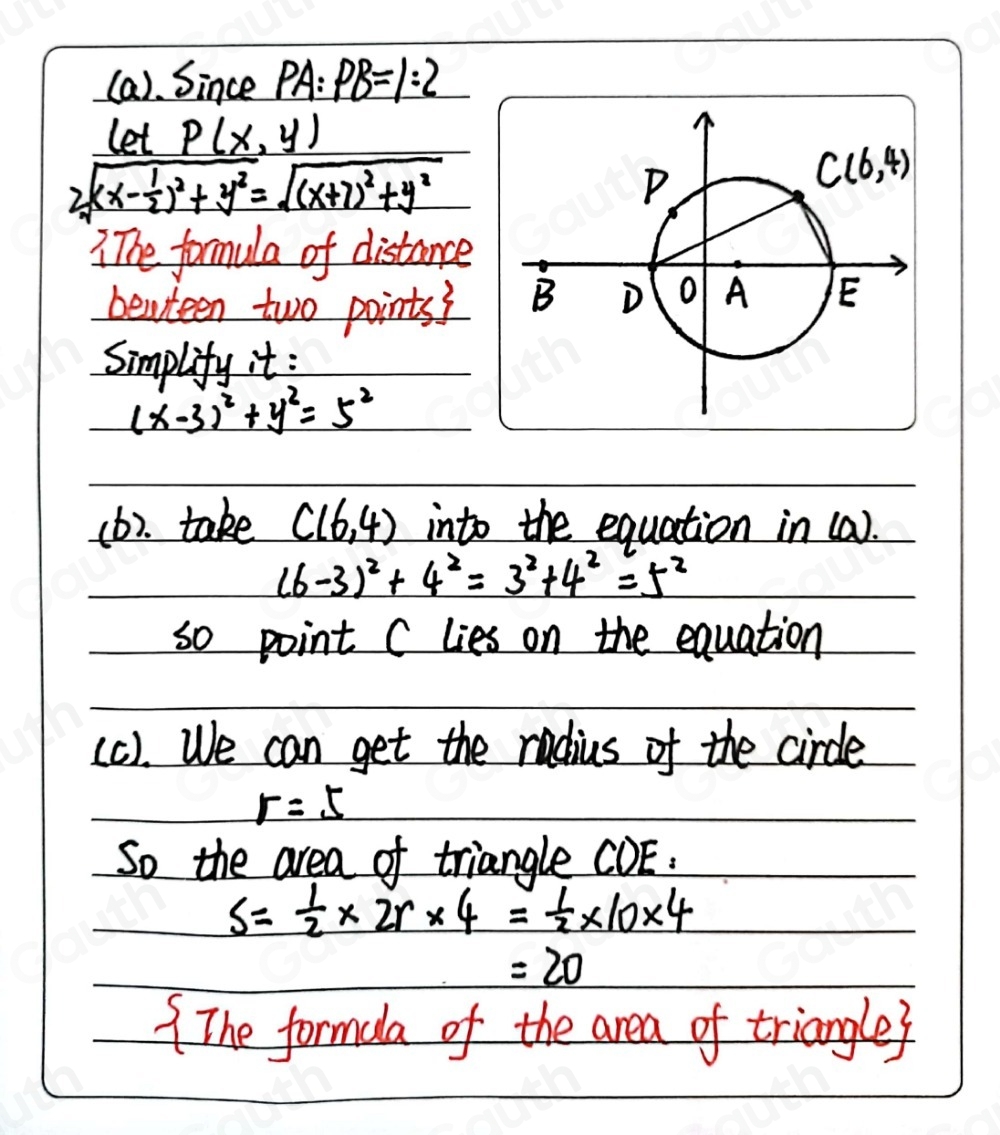 (a). Since PA: PB=1:2
let P(x, y)
2√(x-1/2)²+y² = √(x+7)²+y²
{The formula of distance
bewteen two points}
Simplify it:
(x-3)²+y²= 5²
P
C(6,4)
B D O A E
(b). take C(6,4) into the equation in (a).
(6-3)²+4² = 3²+4² =5²
so point C lies on the equation
(c). We can get the radius of the circle
r=5
So the area of triangle CDE:
S= 1/2 × 2r × 4 = 1/2 ×10×4
= 20
{The formula of the area of triangle}
Gauth